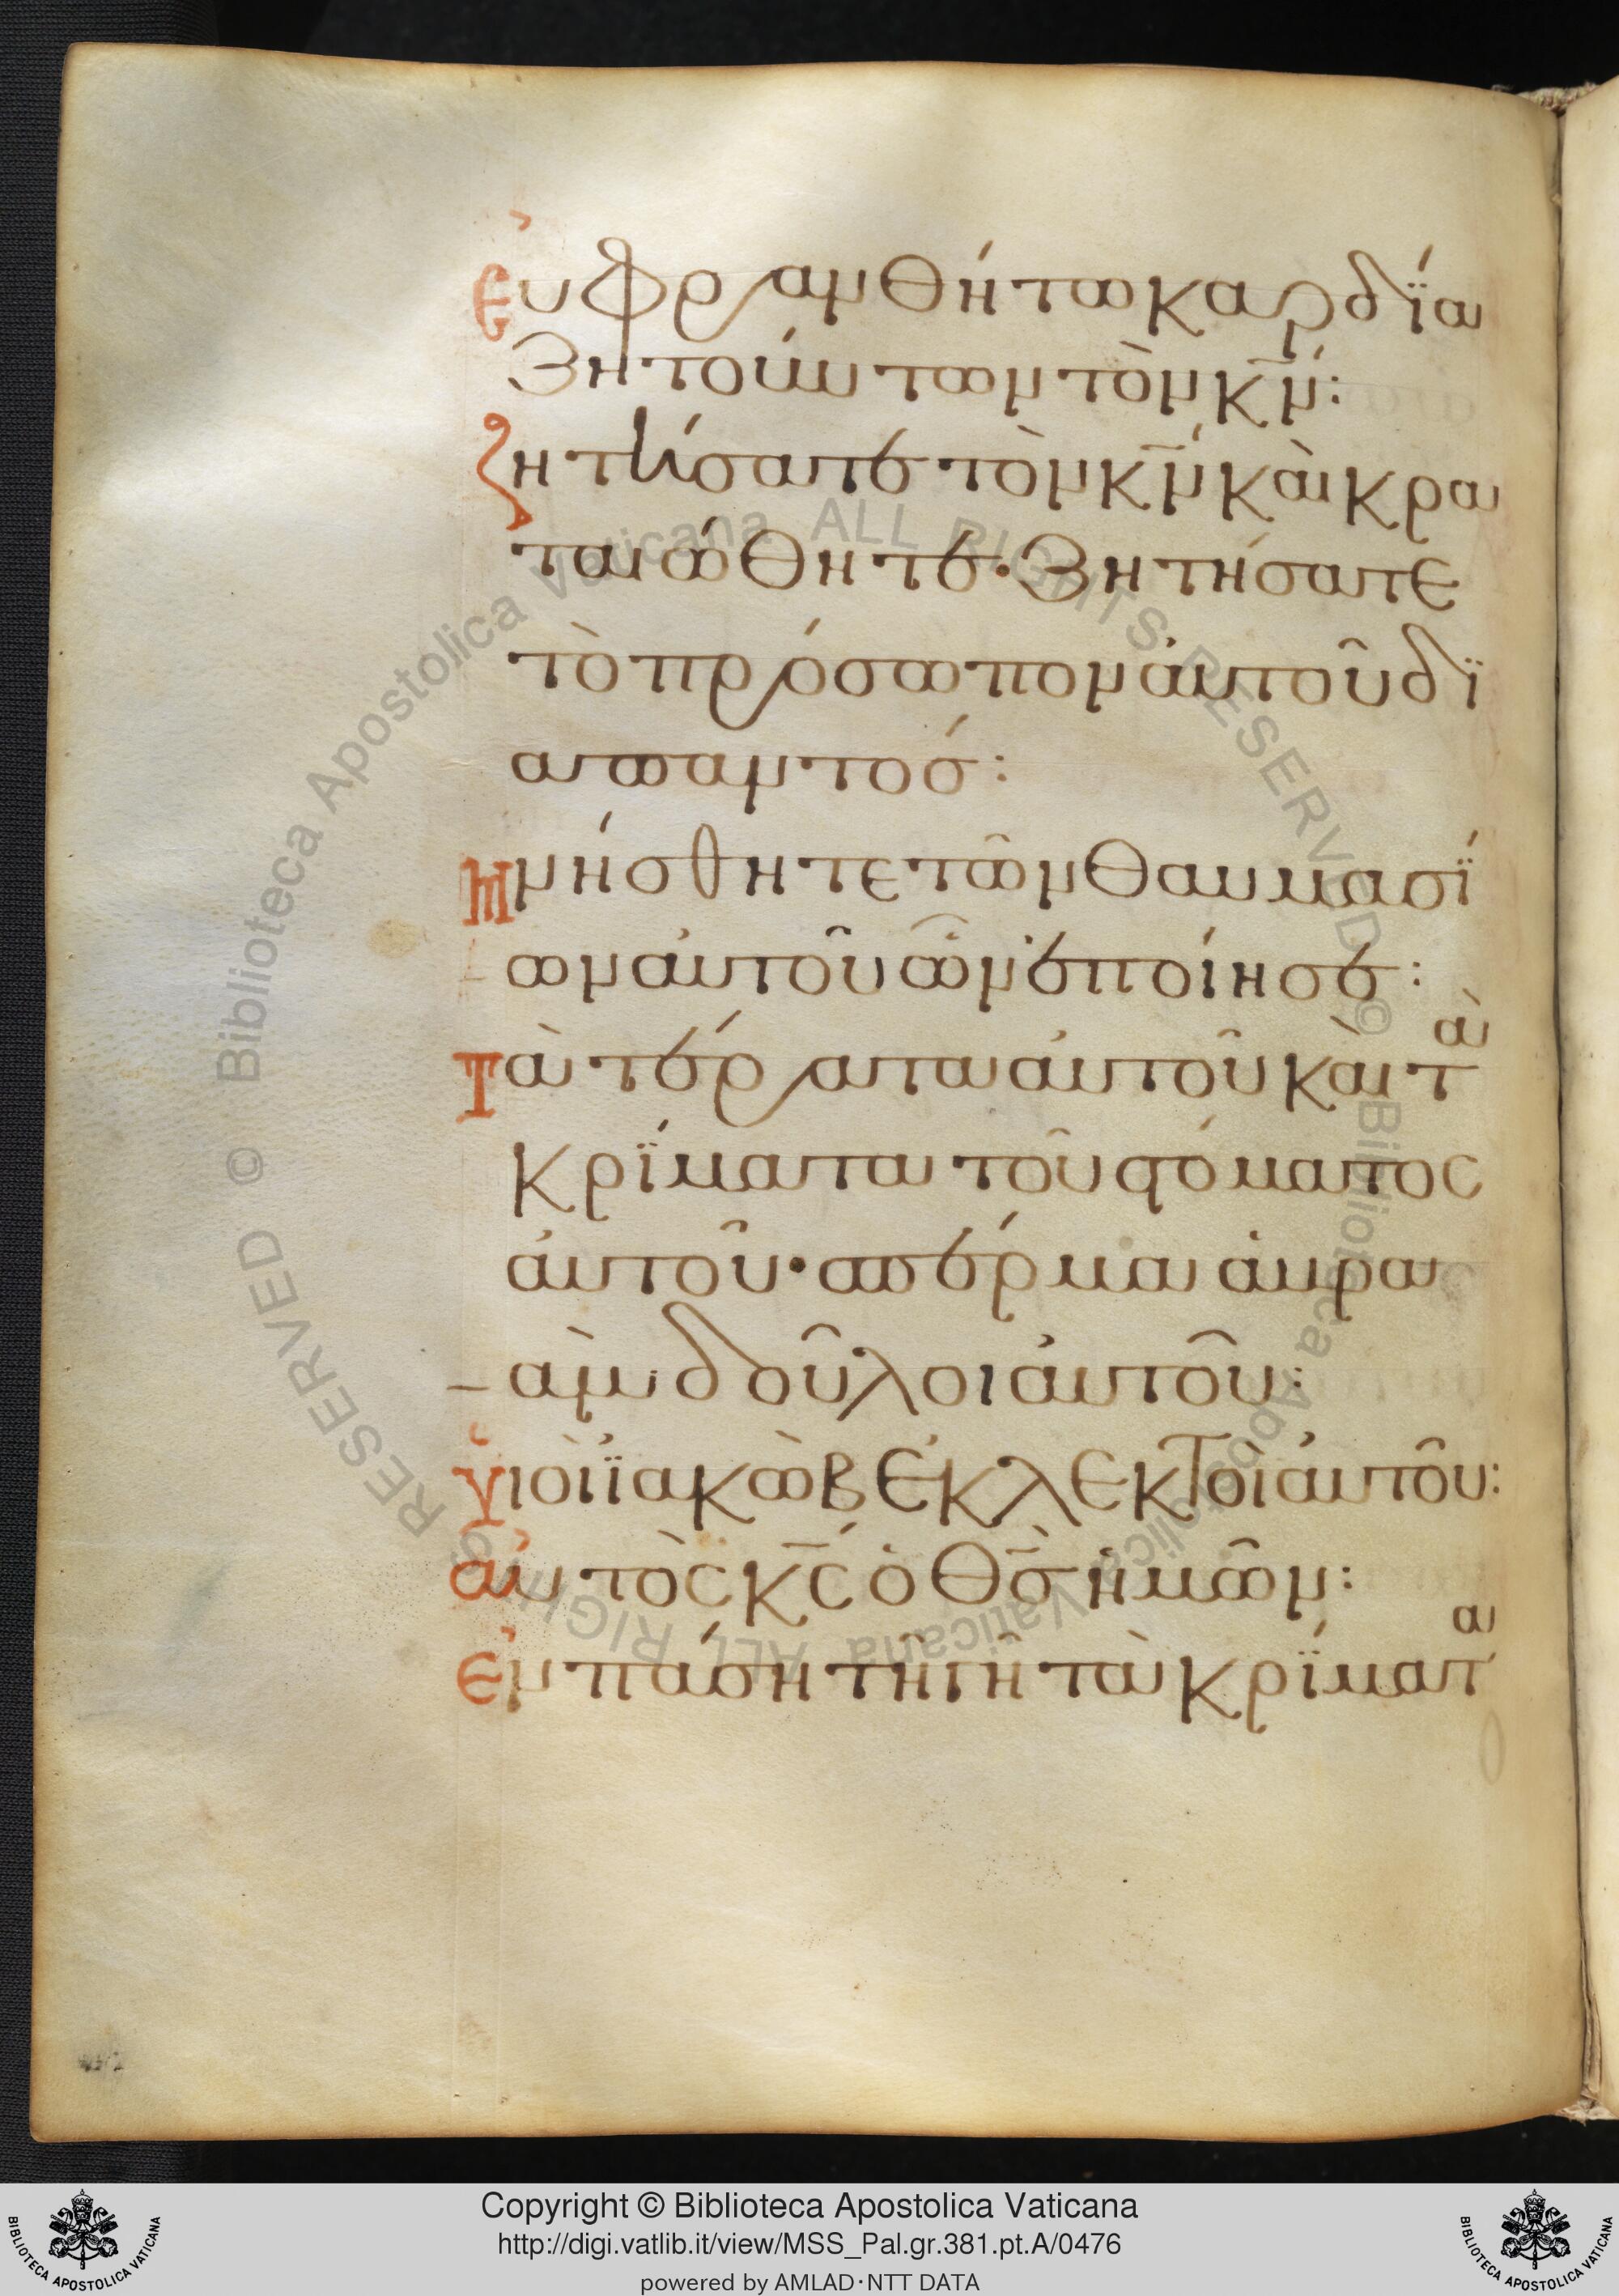 ἐυφρανθήτω καρδΐα
ζητούντων τὸν κ̅ν́:
ζητήσατε τὸν κ̅ν́ κὰι κρα
ταιώθητε· ζητήσατε
τὸ πρόσωπον ἀυτοῦ δϊ
απαντόσ:
Μνήσθητε τῶν θαυμασΐ
ων ἀυτοῦ ὧν ἐποίησέ:
Τὰ τέρατα ἀυτοῦ κὰι τὰ
κρΐματα τοῦ στόματος
ἀυτοῦ· σπέρμα ἁβρα
ὰμ δοῦλοι ἀυτοῦ:
ὑιοὶ ϊακὼβ ἐκλεκτοὶ ἀυτοῦ:
ἀυτὸς κ̅ς́ ὁ θ̅σ̀ ἡμῶν:
ἐν πάση τῆ γῆ τὰ κρΐματα
Copyright © Biblioteca Apostolica Vaticana
http://digi.vatlib.it/view/MSS_Pal.gr.381.pt.A/0476
powered by AMLAD·NTT DATA
BIBLIOTECA APOSTOLICA VATICANA
BIBLIOTECA APOSTOLICA VATICANA
© Biblioteca Apostolica Vaticana ALL RIGHTS RESERVED
© Biblioteca Apostolica Vaticana ALL RIGHTS RESERVED